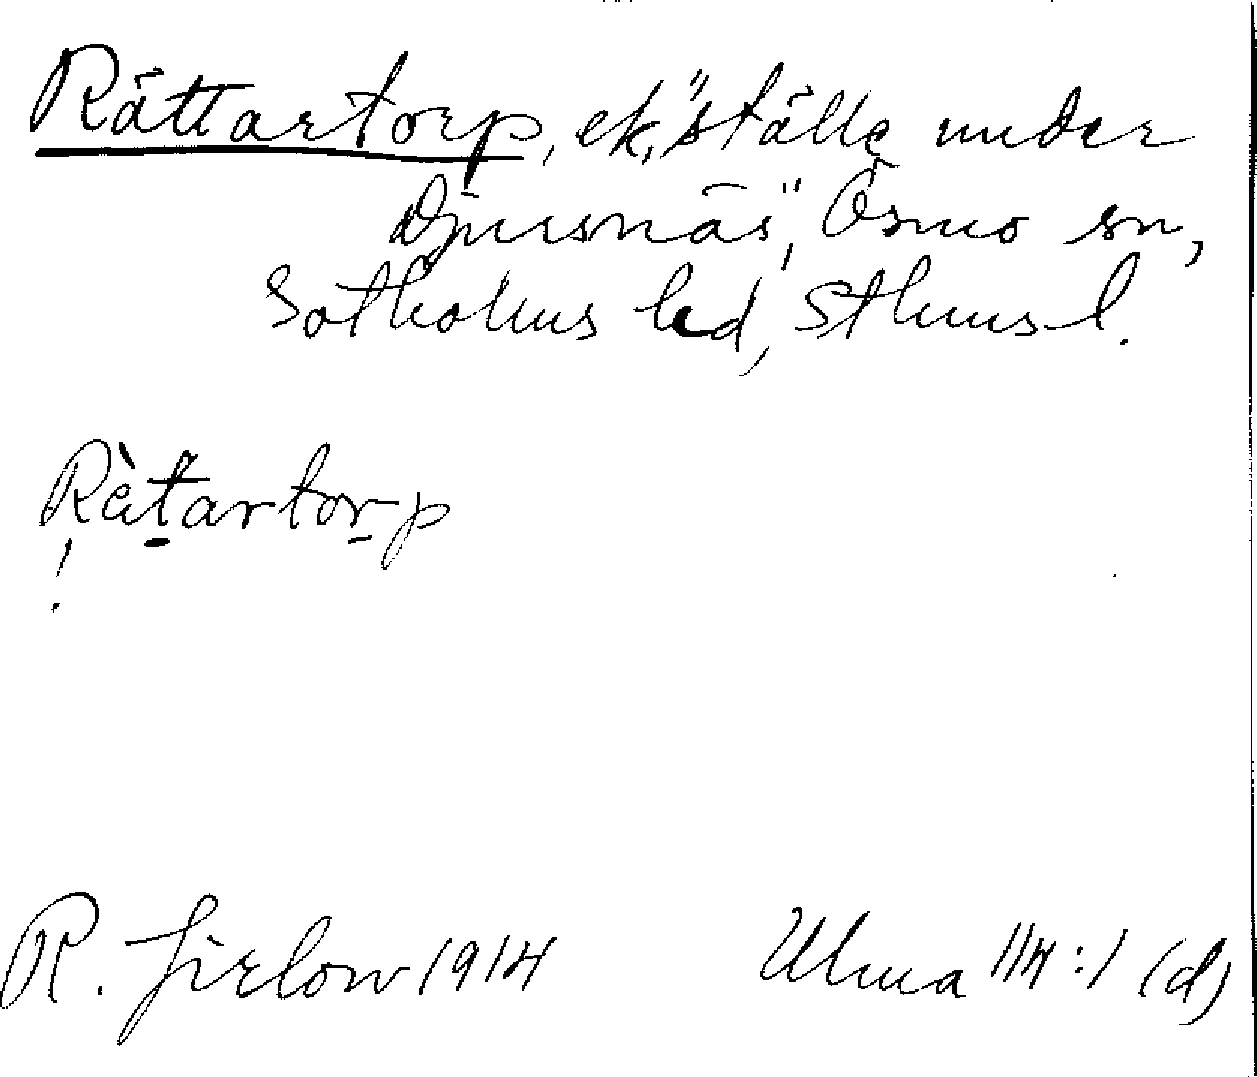 Rättartorp, ek, "ställe under
Djursnäs", Ösmo sn,
Sotholms hd, Sthms l.
Rètartorp
!
R. Jirlow 1914
Ulma 114:1 (d)